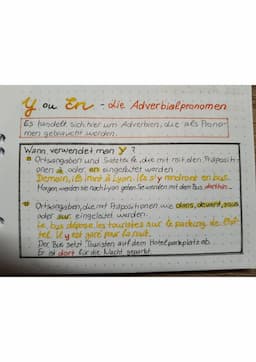 Y ou En - die Adverbialpronomen
Es handelt sich hier um Adverbien, die als Prono-
men gebraucht werden.
Wann verwendet man Y ?
Ortsangaben und Satzteile, die mit mit den Präpositi-
onen à oder en eingeleitet werden.
Demain, ils iront à Lyon. Ils s'y rendront en bus.
Morgen werden sie nach Lyon gehen. Sie werden mit dem Bus dorthin...
Ortsangaben, die mit Präpositionen wie dans, devant, sous
oder sur eingeleitet werden.
Le bus dépose les touristes sur le parking de l'hô-
tel. Il y est garé pour la nuit.
Der Bus setzt Touristen auf dem Hotelparkplatz ab.
Er ist dort für die Nacht geparkt.